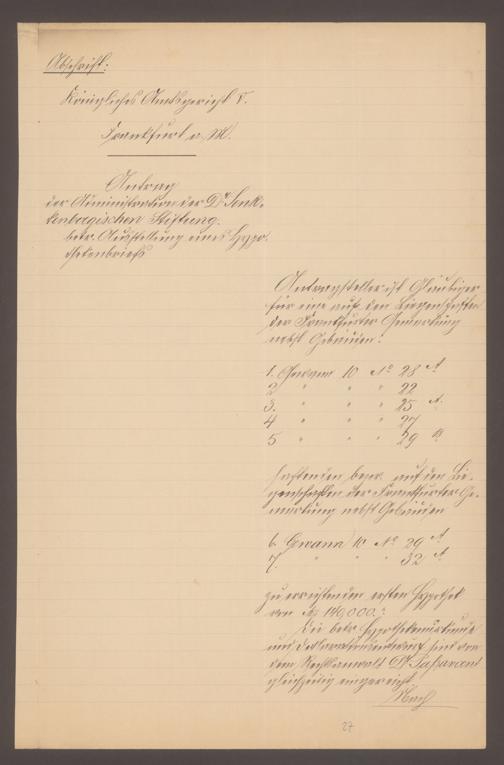 Abschrift:
Königliches Amtsgericht V.
Frankfurt a. M.
Antrag
der Administration der Dr Senk-
kenbergischen Stiftung.
betr. Ausstellung eines Hypo-
thekenbriefs
Antragsteller ist Gläubiger
für eine auf den Liegenschaften
der Frankfurter Gemarkung
nebst Gebäuden:
1. Gewann 10 No 28 A
2 " " " 22
3. " " " 25 A.
4 " " " 27
5 " " " 29 B
haftenden bezw. auf den Lie-
genschaften der Frankfurter Ge-
markung nebst Gebäuden
6. Gewann 10 No 29 A
7. " " " 32 A
zu errichtenden ersten Hypothek
von M 140,000.
Die betr. Hypothekenurkunde
und sind von
dem Rechtsanwalt Dr Passavant
gleichzeitig eingereicht
27